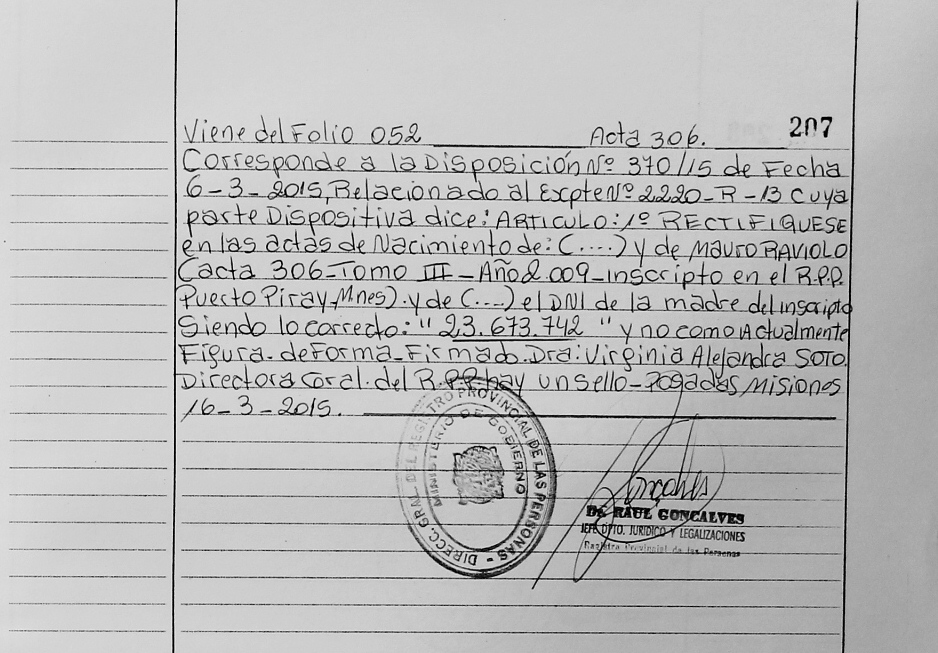 207
Viene del Folio 052 Acta 306.
Corresponde a la Disposición Nº 370/15 de Fecha
6-3-2015, Relacionado al Expte Nº 2220-R-13 cuya
parte Dispositiva dice: ARTICULO: 1º RECTIFIQUESE
en las actas de Nacimiento de: (....) y de MAURO RAVIOLO
Cacta 306-Tomo III-Año 2.009-inscripto en el R.P.P.
Puerto Piray-Mnes). y de (....) el DNI de la madre del inscripto
Siendo lo correcto: "23.673.742" y no como Actualmente
Figura. de Forma-Firmado. Dra: Virginia Alejandra SOTO.
Directora Gral. del R.P.P. hay un sello-Posadas Misiones
16-3-2015.
DIRECC. GRAL. DEL REGISTRO PROVINCIAL DE LAS PERSONAS
MINISTERIO DE GOBIERNO
Dr. RAUL GONCALVES
JEFE DPTO. JURIDICO Y LEGALIZACIONES
Registro Provincial de las Personas